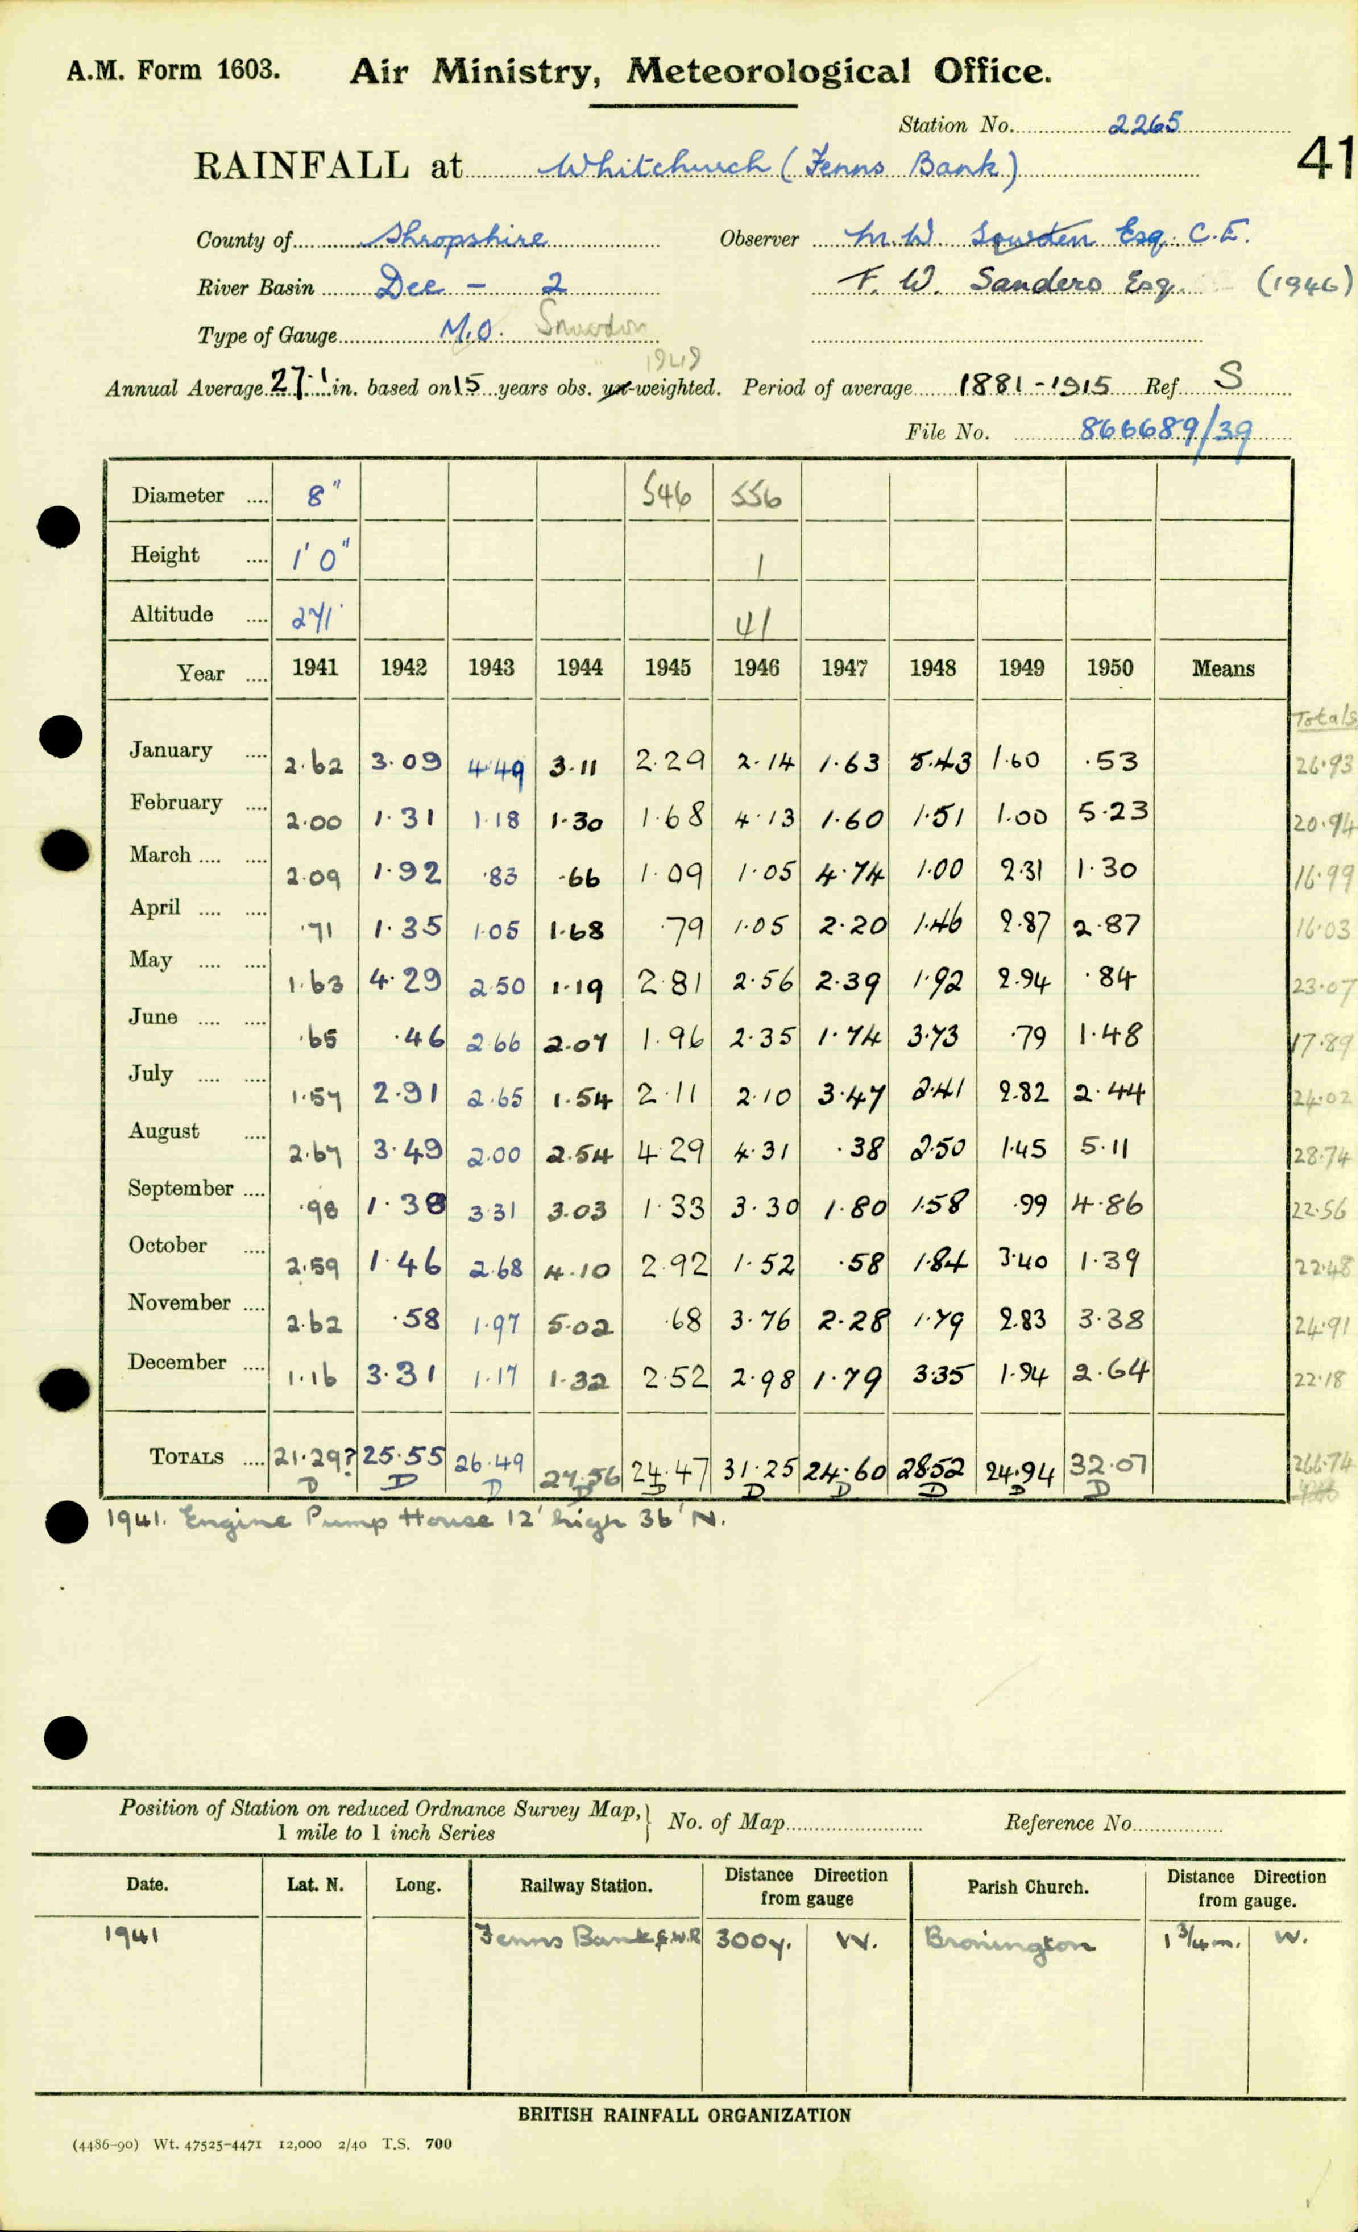 A.M. Form 1603. Air Ministry, Meteorological Office.
Station No. 2265
41
RAINFALL at Whitchurch (Fenns Bank)
County of Shropshire Observer M.W. Sowden Esq. C.E.
River Basin Dee - 2 F. W. Sanders Esq. (1946)
Type of Gauge M.O. Snowdon
Annual Average 27.1 in. based on 15 years obs. un-weighted. Period of average 1881-1915 Ref S
File No. 866689/39
Diameter .... 8" 546 556
Height .... 1'0" 1
Altitude .... 271' 41
Year .... 1941 1942 1943 1944 1945 1946 1947 1948 1949 1950 Means
Totals
January .... 2.62 3.09 4.49 3.11 2.29 2.14 1.63 5.43 1.60 .53 26.93
February .... 2.00 1.31 1.18 1.30 1.68 4.13 1.60 1.51 1.00 5.23 20.94
March .... .... 2.09 1.92 .83 .66 1.09 1.05 4.74 1.00 2.31 1.30 16.99
April .... .... .71 1.35 1.05 1.68 .79 1.05 2.20 1.46 2.87 2.87 16.03
May .... .... 1.63 4.29 2.50 1.19 2.81 2.56 2.39 1.92 2.94 .84 23.07
June .... .... .65 .46 2.66 2.07 1.96 2.35 1.74 3.73 .79 1.48 17.89
July .... .... 1.57 2.91 2.65 1.54 2.11 2.10 3.47 2.41 2.82 2.44 24.02
August .... 2.67 3.49 2.00 2.54 4.29 4.31 .38 2.50 1.45 5.11 28.74
September .... .98 1.38 3.31 3.03 1.33 3.30 1.80 1.58 .99 4.86 22.56
October .... 2.59 1.46 2.68 4.10 2.92 1.52 .58 1.84 3.40 1.39 22.48
November .... 2.62 .58 1.97 5.02 .68 3.76 2.28 1.79 2.83 3.38 24.91
December .... 1.16 3.31 1.17 1.32 2.52 2.98 1.79 3.35 1.94 2.64 22.18
TOTALS .... 21.29? 25.55 26.49 27.56 24.47 31.25 24.60 28.52 24.94 32.07 266.74
D D D D D D D D D D
1941. Engine Pump House 12' high 36' N.
Position of Station on reduced Ordnance Survey Map, 1 mile to 1 inch Series } No. of Map Reference No.
Date. Lat. N. Long. Railway Station. Distance Direction from gauge Parish Church. Distance Direction from gauge.
1941 Fenns Bank G.W.R 300y. W. Bronington 1 3/4 m. W.
BRITISH RAINFALL ORGANIZATION
(4486-90) Wt. 47525-4471 12,000 2/40 T.S. 700